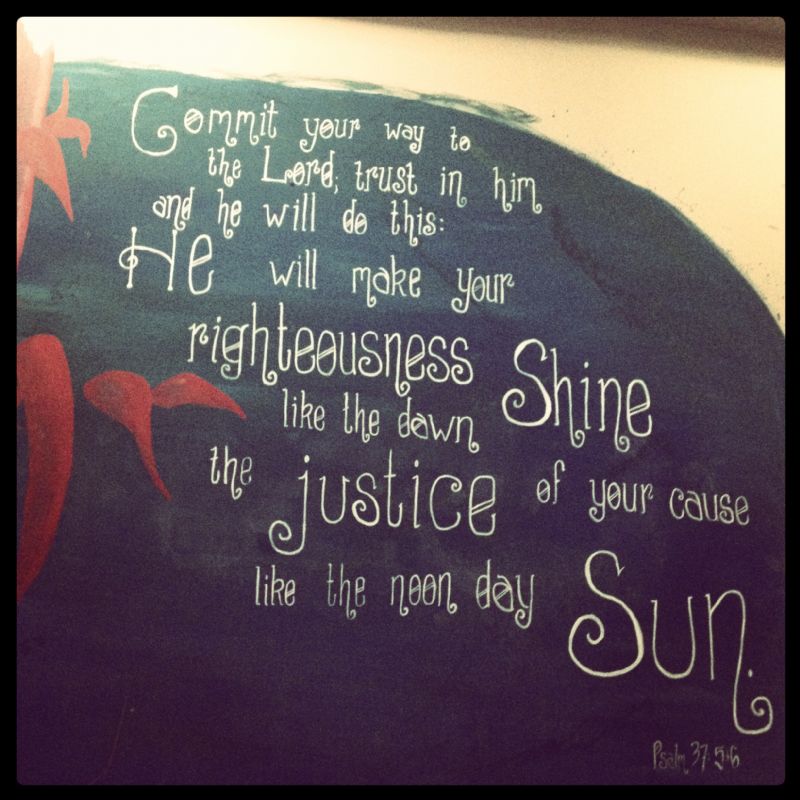 Commit your way to
the Lord; trust in him
and he will do this:
He will make your
righteousness Shine
like the dawn
the justice of your cause
like the noon day
Sun.
Psalm 37:5+6